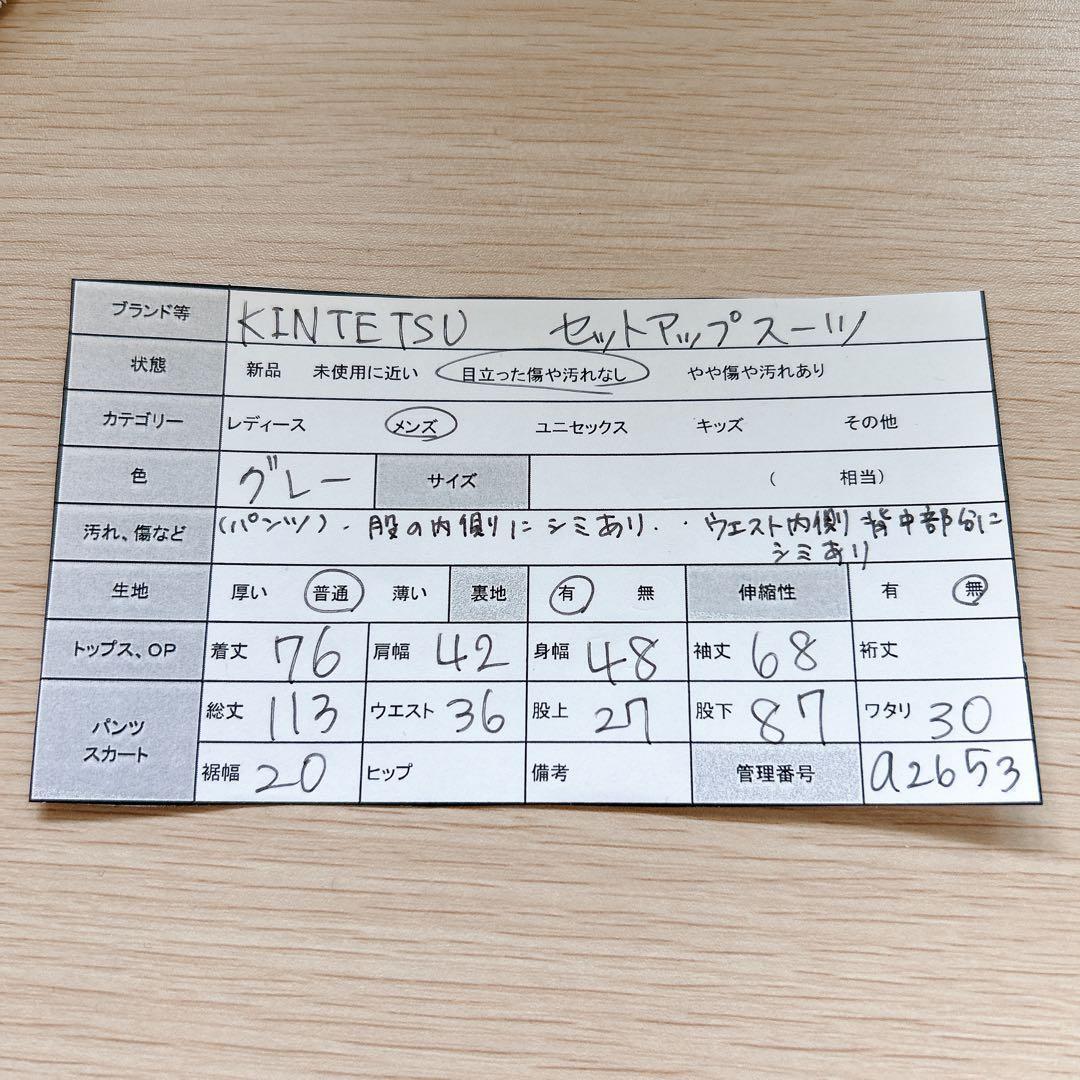 ブランド等 KINTETSU セットアップスーツ
状態 新品 未使用に近い 目立った傷や汚れなし やや傷や汚れあり
カテゴリー レディース メンズ ユニセックス キッズ その他
色 グレー サイズ ( 相当)
汚れ、傷など (パンツ)・股の内側にシミあり・・ウエスト内側背中部分に
シミあり
生地 厚い 普通 薄い 裏地 有 無 伸縮性 有 無
トップス、OP 着丈 76 肩幅 42 身幅 48 袖丈 68 裄丈
パンツ スカート 総丈 113 ウエスト 36 股上 27 股下 87 ワタリ 30
裾幅 20 ヒップ 備考 管理番号 a2653